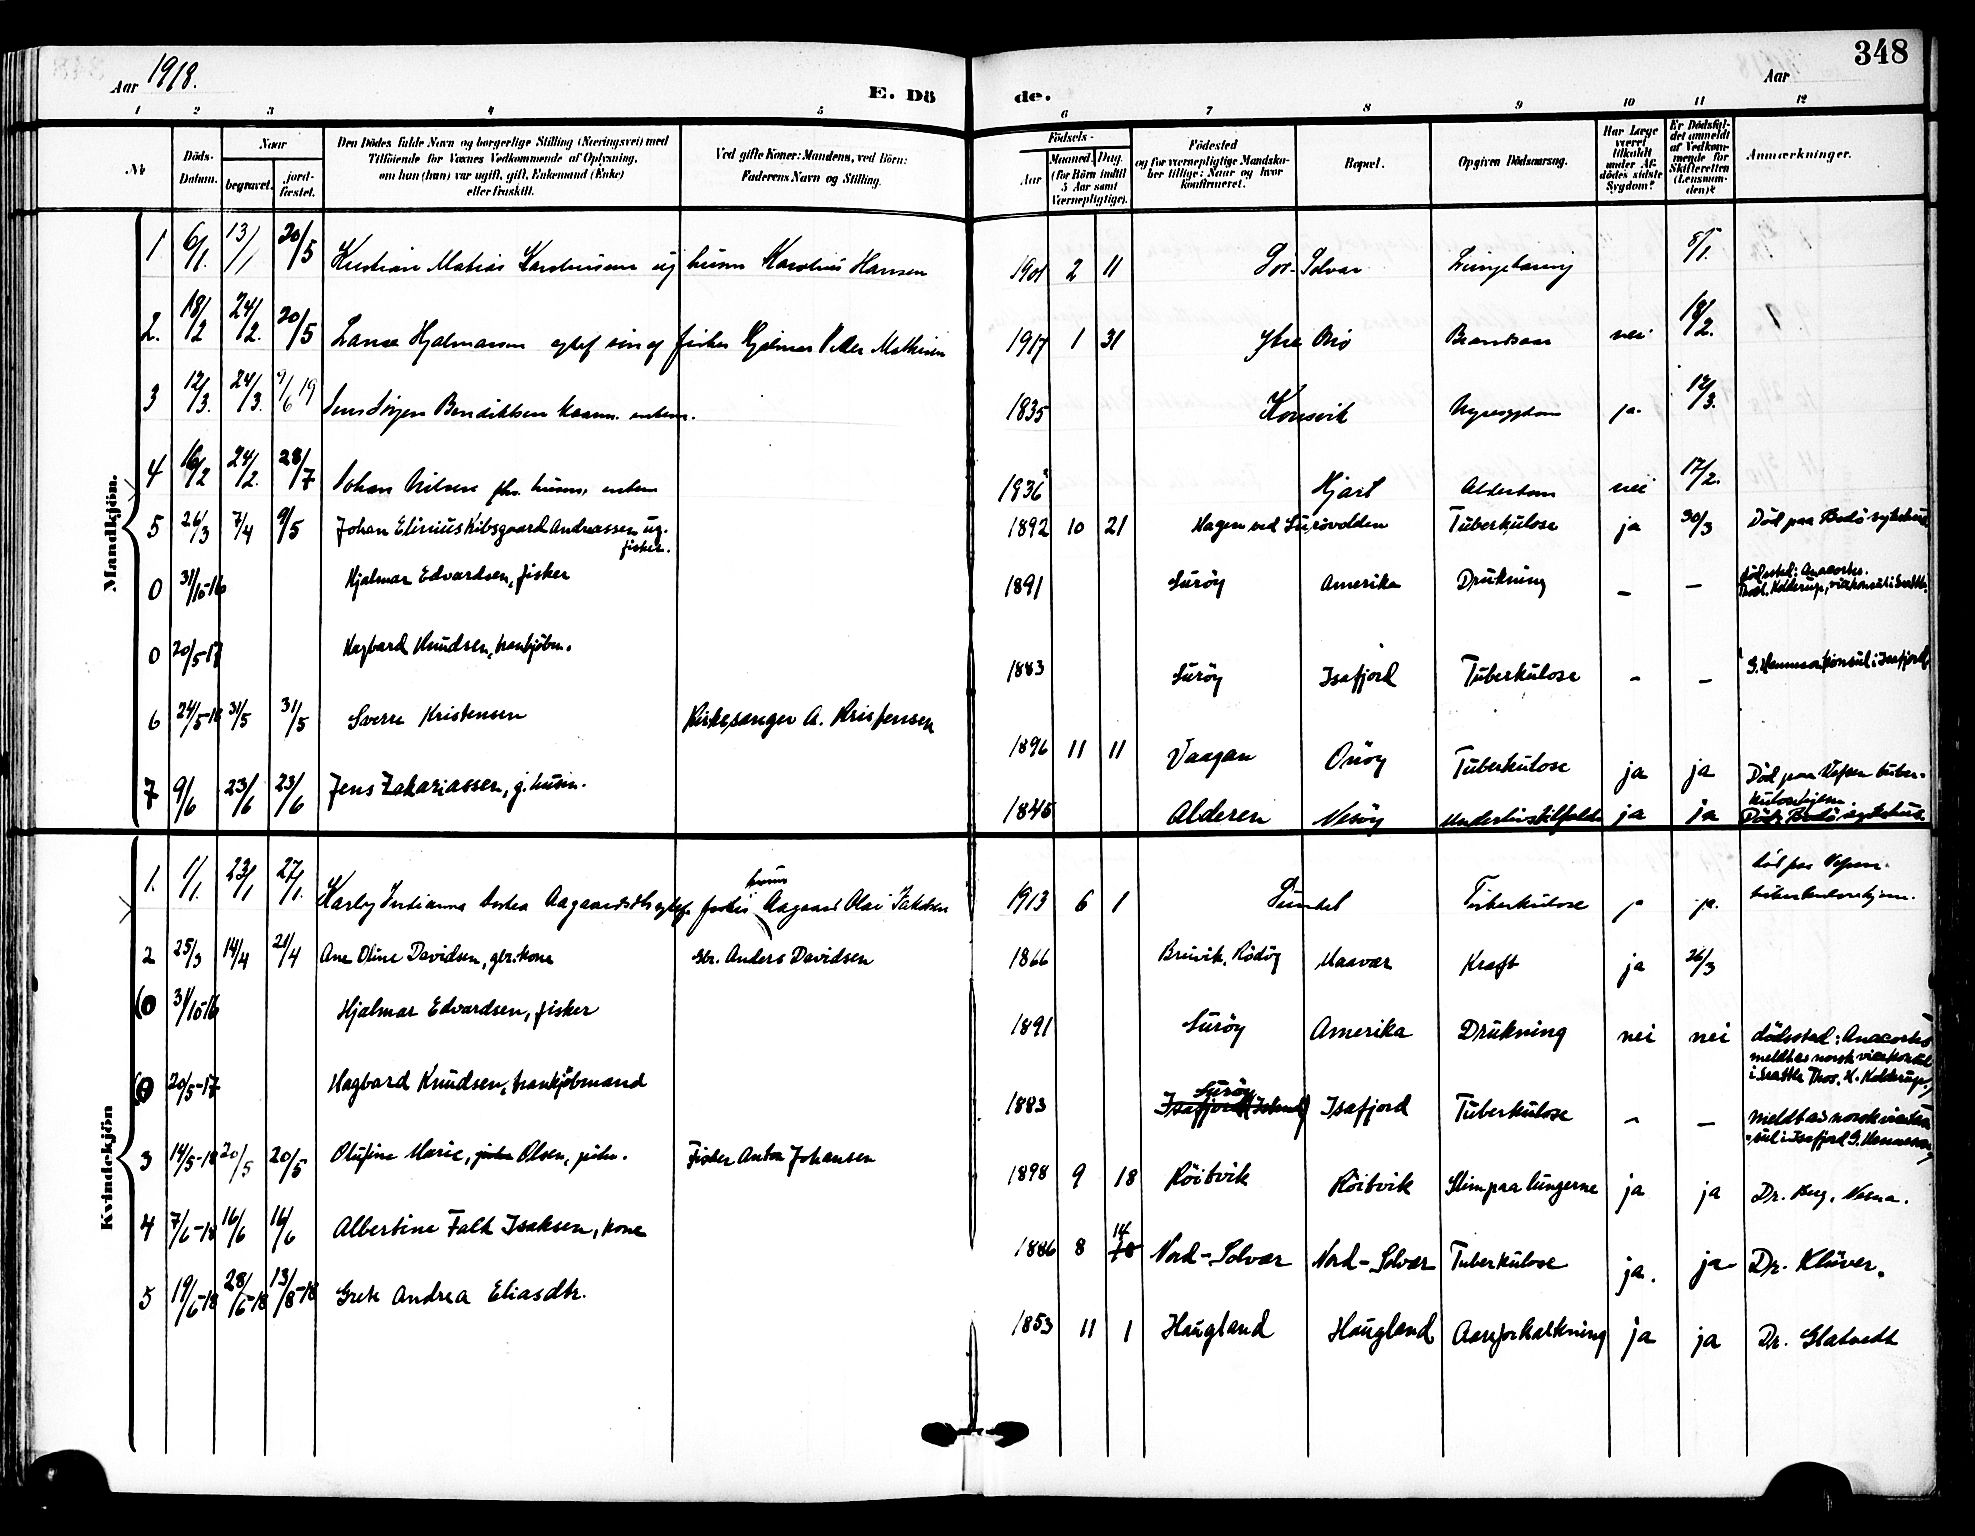 348
Aar 1918.
E. Dö de.
Aar
1 2 3 4 5 6 7 8 9 10 11 12
No
Döds-Datum.
Naar
begravet.
jord-fæstet.
Den Dödes fulde Navn og borgerlige Stilling (Næringsvei) med
Tilföiende for Voxnes Vedkommende af Oplysning,
om han (hun) var ugift, gift, Enkemand (Enke)
eller fraskilt.
Ved gifte Koner: Mandens, ved Börn:
Faderens Navn og Stilling.
Födsels-
Aar
Maaned. Dag.
(for Börn indtil
5 Aar samt
Værnepligtige).
Födested
og for værnepligtige Mandska-
ber tillige: Naar og hvor
konfirmeret.
Bopæl.
Opgiven Dödsaarsag.
Har Læge
været
tilkaldt
under Af-
dödes sidste
Sygdom?
Er Dödsfal-
det anmeldt
af Vedkom-
mende for
Skifteretten
(Lensman-
den)?
Anmærkninger.
Mandkjön.
1 6/1. 13/1 20/5 Kristian Matias ug husm Karolius Hansen 1901 2 11 Sör-Solvær 8/1.
2. 18/2 24/2. 20/5 Hjalmarsen fisker Hjalmar Peder Mathisen 1917 1 31 Ytre nei 18/2.
3 12/3. 24/3. 9/6 19 Jens Benediktsen 1835 Konsvik Nyresygdom ja 12/3.
4 16/2 24/2. 28/7 Johan Nilsen husm. 1836 Hjart Alderdom nei 17/2.
5 26/3 7/4 9/5 Johan Elinius Kibsgaard Andreassen ug. fisker. 1892 10 21 Hagen ved Surövolden Tuberkulose ja 30/3 Död paa Bodö sykehus
0 31/10-16 Hjalmar Edvardsen, fisker 1891 Suröy Amerika Drukning – – dödssted: Anacortes. Kolderup, vicekonsul i Seattle.
0 20/5-17 Hagbard Knudsen, 1883 Suröy Isafjord Tuberkulose – – konsul i Isafjord
6 24/5-18 31/5 31/5 Sverre Kristensen Kirkesanger A. Kristensen 1896 11 11 Vaagan Onöy Tuberkulose ja ja Död paa Vefsen tuber-
kulosehjem.
7 9/6 23/6 23/6 Jens Zakariassen, g. husm. 1845 Alderen Nesöy Underlivstilfelde ja ja Död Bodö sykehus
Kvindekjön
1. 1/1. 23/1 27/1. Aagaardsdtr husm Aagaard Olai Jakobsen 1913 6 1 Sundet Tuberkulose ja. död paa Vefsen
tuberkulosehjem.
2 25/3 14/4 21/4 Ane Oline Davidsen, gbr.kone Gbr. Anders Davidsen 1866 Breivik, Rödöy Maavær Kræft ja 26/3
(0 31/10-16 Hjalmar Edvardsen, fisker 1891 Suröy Amerika Drukning nei nei dödssted: Anacortes
meldt av norsk vicekonsul
i Seattle Thos. H. Kolderup.)
(0 20/5-17 Hagbard Knudsen, handelsmand 1883 Suröy Isafjord (Island) Isafjord Tuberkulose – – meldt av norsk vicekon-
sul i Isafjord
3 14/5-18 20/5 20/5 Olufine Marie, Olsen, Fisker Anton Johansen 1898 9 18 Röitvik Röitvik Slim paa lungerne ja ja Dr. Berg, Nesna.
4 7/6-18 16/6 16/6 Albertine Falk Isaksen, kone 1886 8 14 Nord-Solvær Nord-Solvær Tuberkulose ja. ja Dr. Klüver.
5 19/6-18 28/6-18 13/8-18 Grete Andrea Eliasdtr. 1853 11 1 Haugland Haugland Aareforkalkning ja ja Dr. Glatvedt